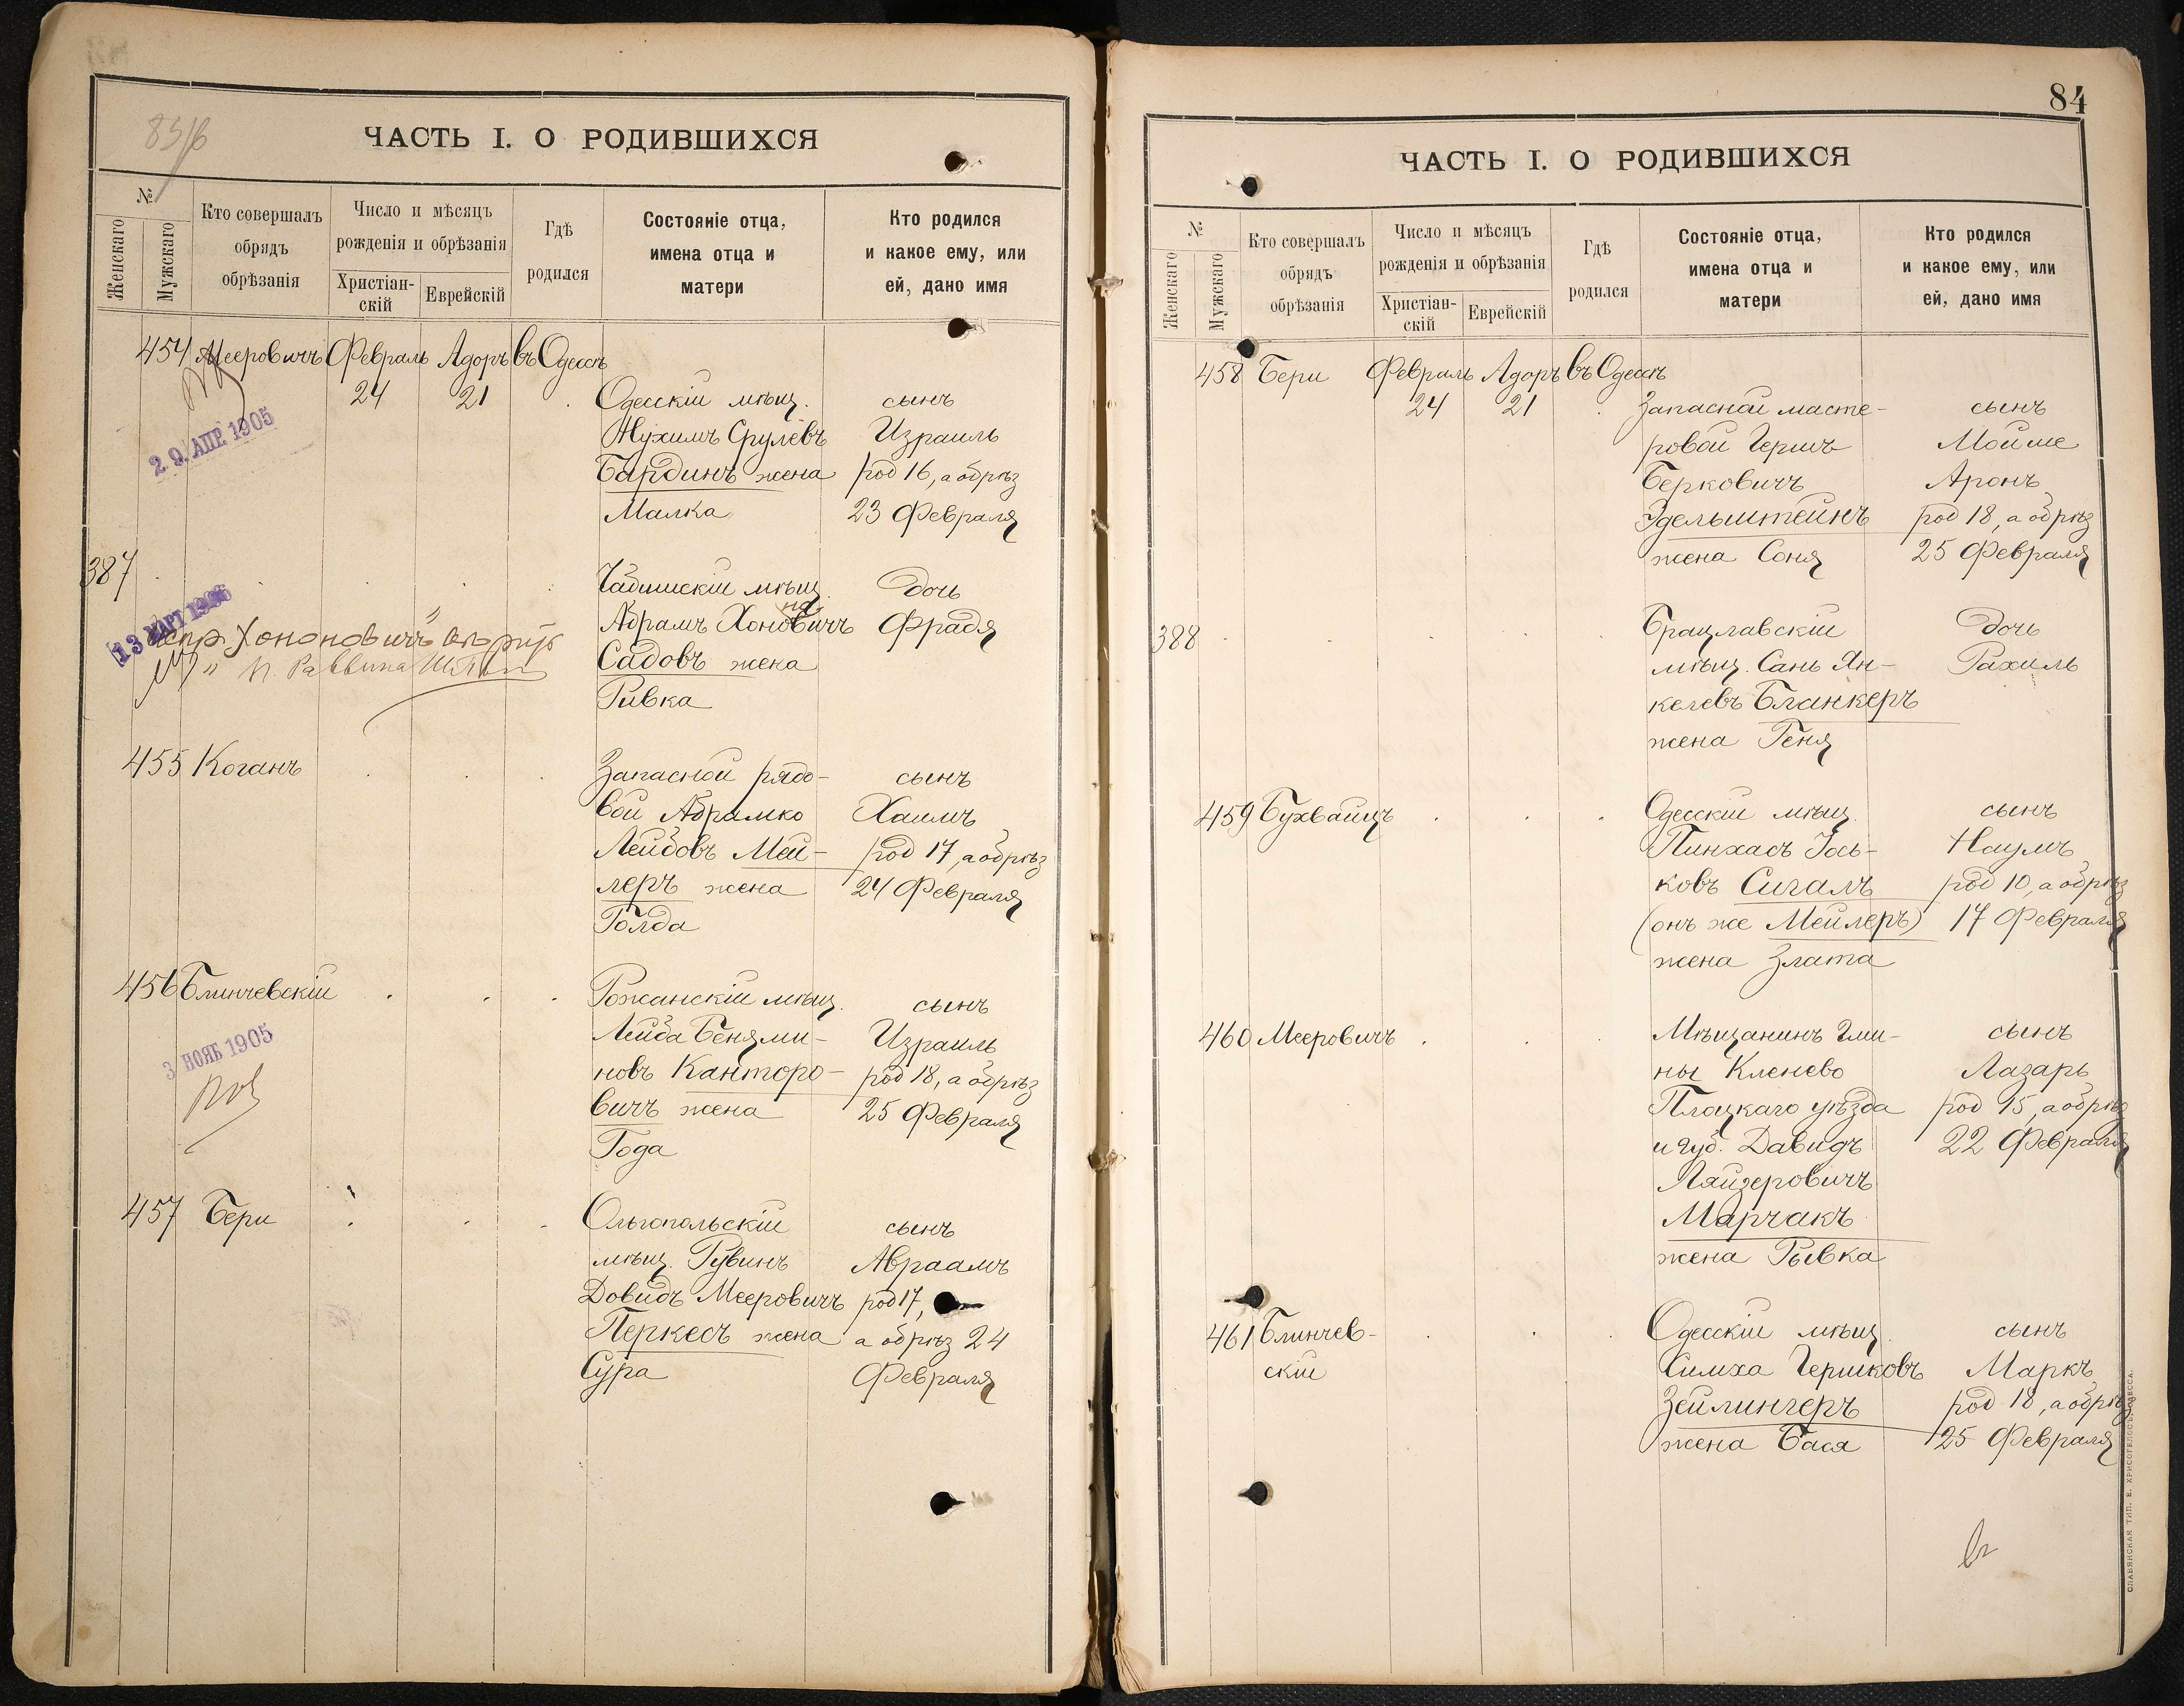 83/б
ЧАСТЬ I. О РОДИВШИХСЯ
№
Женскаго
Мужскаго
Кто совершалъ
обрядъ
обрѣзанія
Число и мѣсяцъ
рожденія и обрѣзанія
Христіан-
скій
Еврейскій
Гдѣ
родился
Состояніе отца,
имена отца и
матери
Кто родился
и какое ему, или
ей, дано имя
454 Мееровичъ Февраль Адоръ въ Одессѣ
24 21
Одесскій мѣщ. сынъ
Нухимъ Срулевъ Израиль
Бардинъ жена род 16, а обрѣз
Малка 23 Февраля
29. АПР. 1905
387
Чадишскій мѣщ. дочь
на
Абрамъ Хоновичъ Фрадя
Садовъ жена
Ривка
13 МАРТ 1906
испр. Хононовичъ
Раввина
455 Коганъ
Запасной рядо- сынъ
вой Абрамко Хаимъ
Лейбовъ Мей- род 17, а обрѣз
леръ жена 24 Февраля
Голда
456 Блинчевскій
Рожанскій мѣщ. сынъ
Лейба Беньями- Израиль
новъ Канторо- род 18, а обрѣз
вичъ жена 25 Февраля
Года
3 НОЯБ 1905
457 Бери
Ольгопольскій сынъ
мѣщ. Рувинъ Авраамъ
Довидъ Мееровичъ род 17,
Перкесъ жена а обрѣз 24
Сура Февраля
84
ЧАСТЬ I. О РОДИВШИХСЯ
№
Женскаго
Мужскаго
Кто совершалъ
обрядъ
обрѣзанія
Число и мѣсяцъ
рожденія и обрѣзанія
Христіан-
скій
Еврейскій
Гдѣ
родился
Состояніе отца,
имена отца и
матери
Кто родился
и какое ему, или
ей, дано имя
458 Бери Февраль Адоръ въ Одессѣ
24 21
Запасной масте- сынъ
ровой Гершъ Мойше
Берковичъ Аронъ
Эдельштейнъ род 18, а обрѣз
жена Соня 25 Февраля
388
Брацлавскій дочь
мѣщ. Сань Ян- Рахиль
келевъ Бланкеръ
жена Геня
459 Бухвайцъ
Одесскій мѣщ. сынъ
Пинхасъ Іось- Наумъ
ковъ Сигалъ род 10, а обрѣз
(онъ же Мейлеръ) 17 Февраля
жена Злата
460 Мееровичъ
Мѣщанинъ Гми- сынъ
ны Кленево Лазарь
Плоцкаго уѣзда род 15, а обрѣз
и губ. Давидъ 22 Февраля
Ляйзеровичъ
Марчакъ
жена Рывка
461 Блинчев-
скій
Одесскій мѣщ. сынъ
Симха Гершковъ Маркъ
Зейлингеръ род 18, а обрѣз
жена Бася 25 Февраля
СЛАВЯНСКАЯ ТИП. Е. ХРИСОГЕЛОСЪ, ОДЕССА.